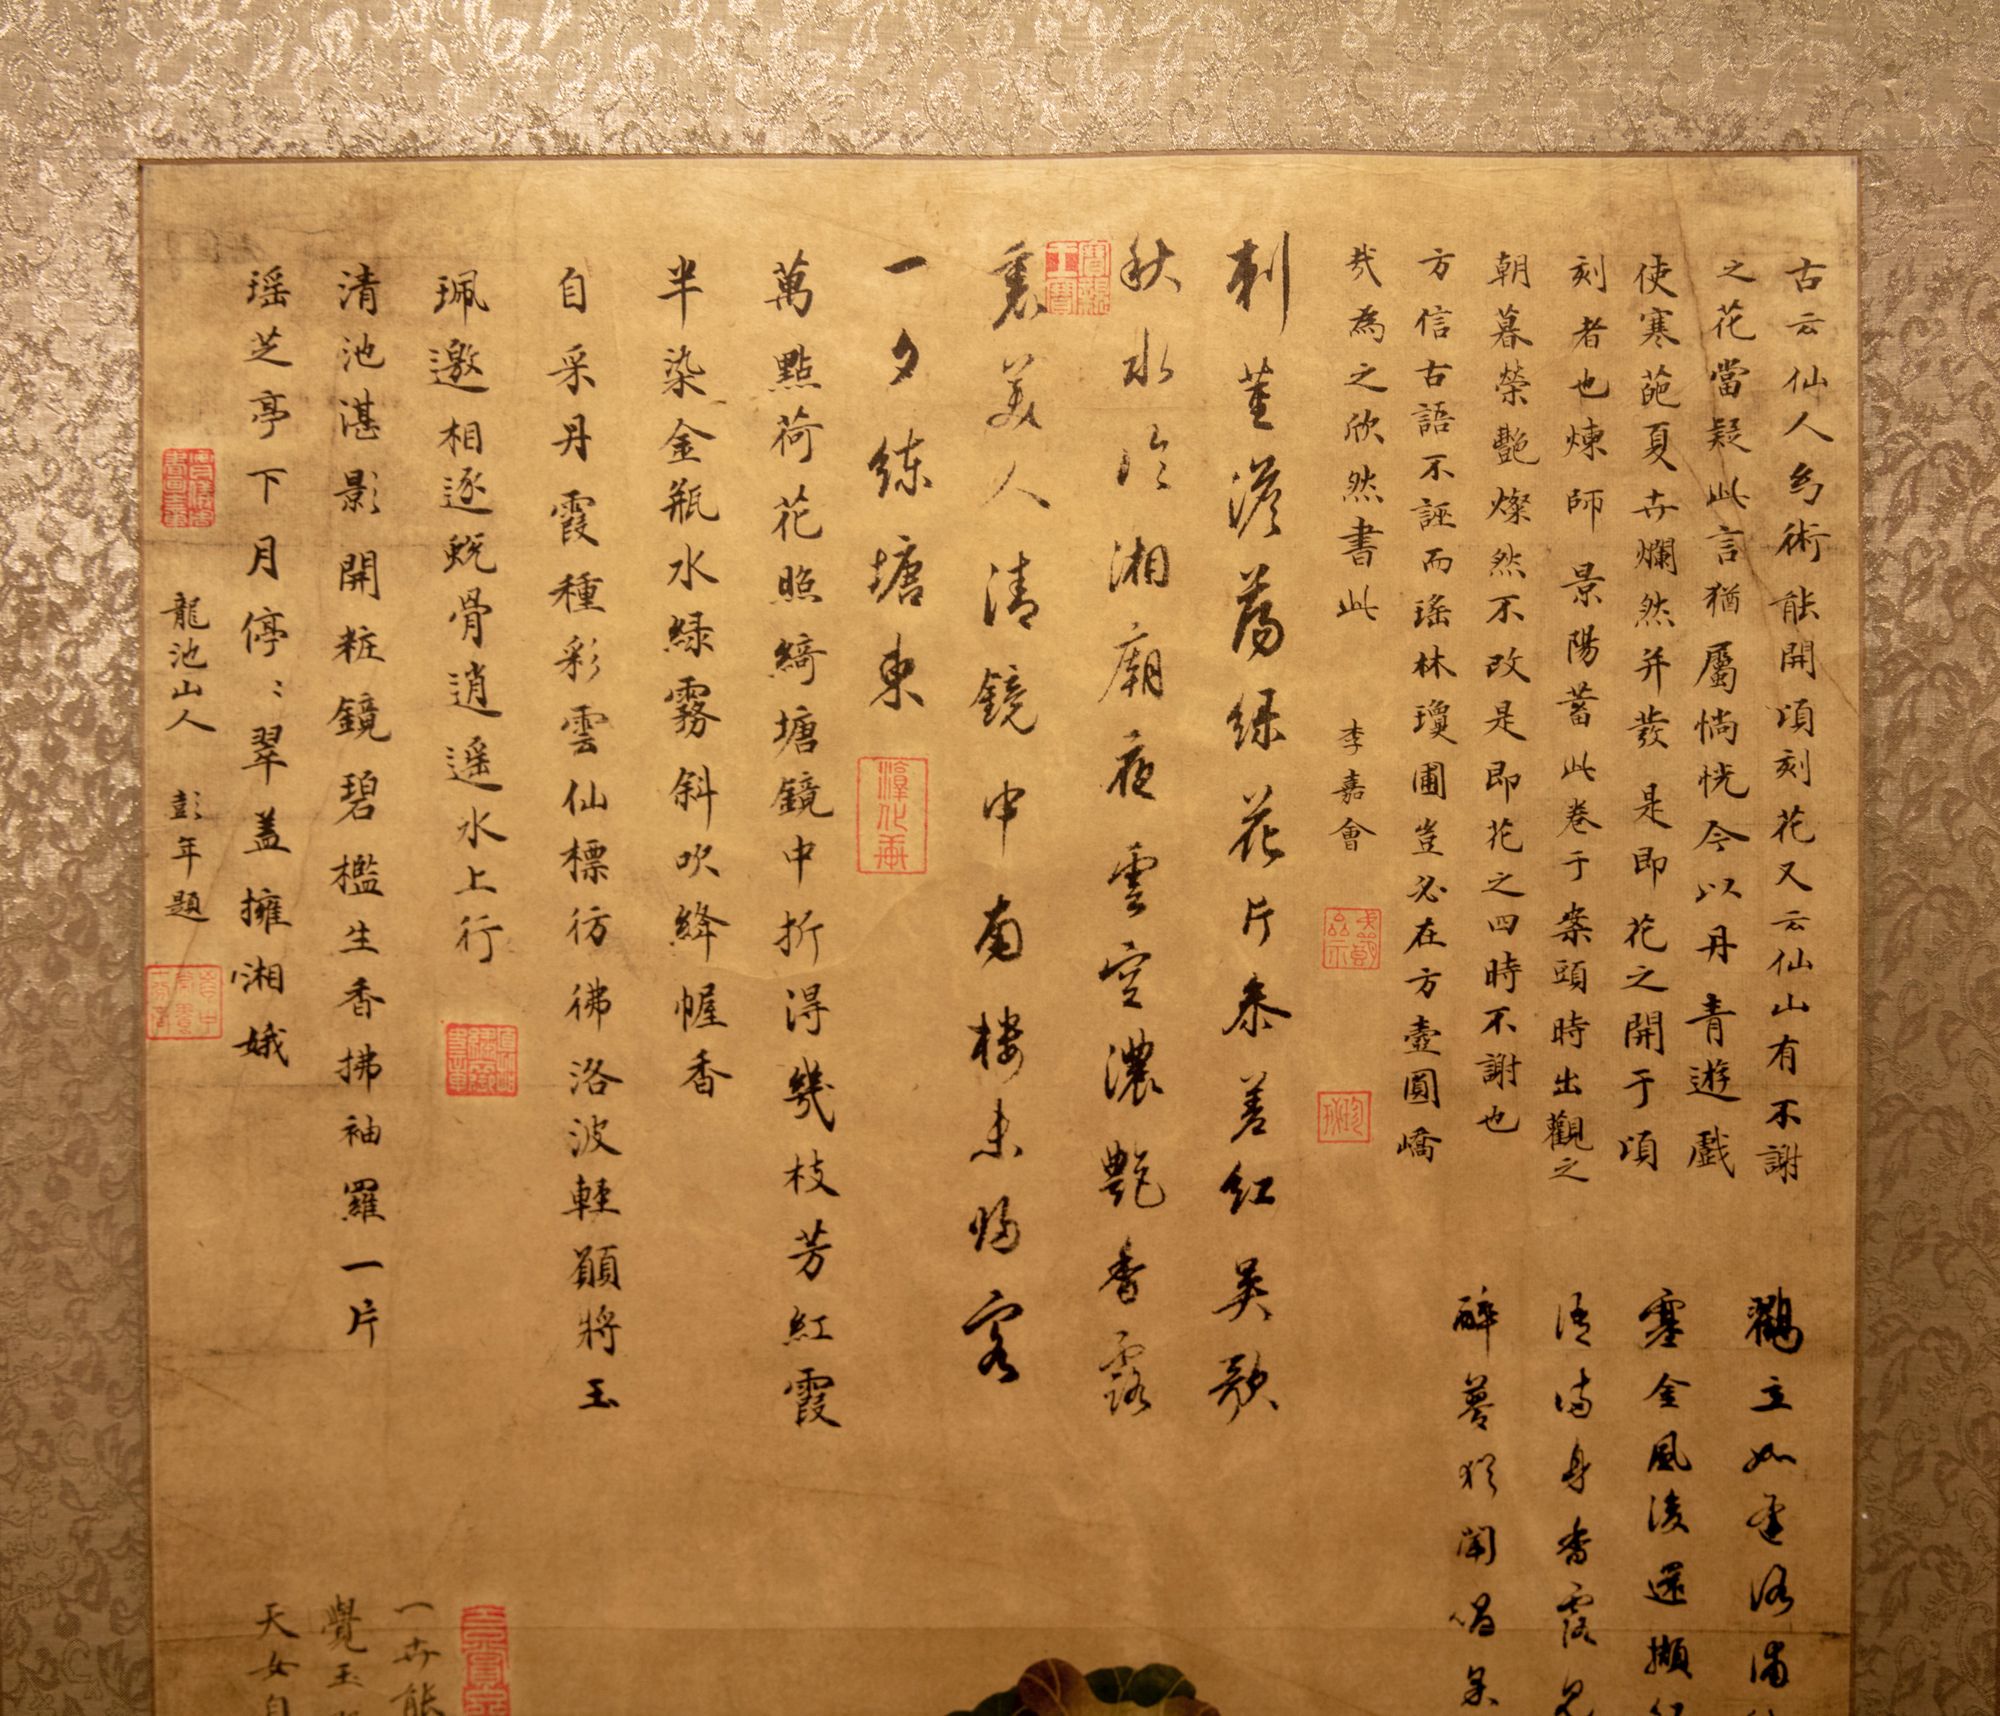 古云仙人幻術能開頃刻花又云仙山有不謝
之花當疑此言猶屬惝恍今以丹青遊戲
使寒葩夏卉爛然并發是即花之開于頃
刻者也煉師景陽蓄此卷于案頭時出觀之
朝暮榮艷燦然不改是即花之四時不謝也
方信古語不誣而瑤林瓊圃豈必在方壺圓嶠
哉為之欣然書此
李嘉會
刺莖澹蕩綠花片參差紅吳歌
秋水冷湘廟夜雲空濃艷香露
裏美人清鏡中南樓未歸客
一夕練塘東
萬點荷花照綺塘鏡中折得幾枝芳紅霞
半染金瓶水綠霧斜吹絳幄香
自采丹霞種彩雲仙標彷彿洛波輕顚將玉
珮邀相逐蛻骨逍遥水上行
清池湛影開粧鏡碧檻生香拂袖羅一片
瑶芝亭下月停：翠盖擁湘娥
龍池山人 彭年題
鸘立如逢洛浦
寒金風淩還擷紅
浥滿身香露見
醉夢猶聞唱采
一卉能
覺玉
天女自